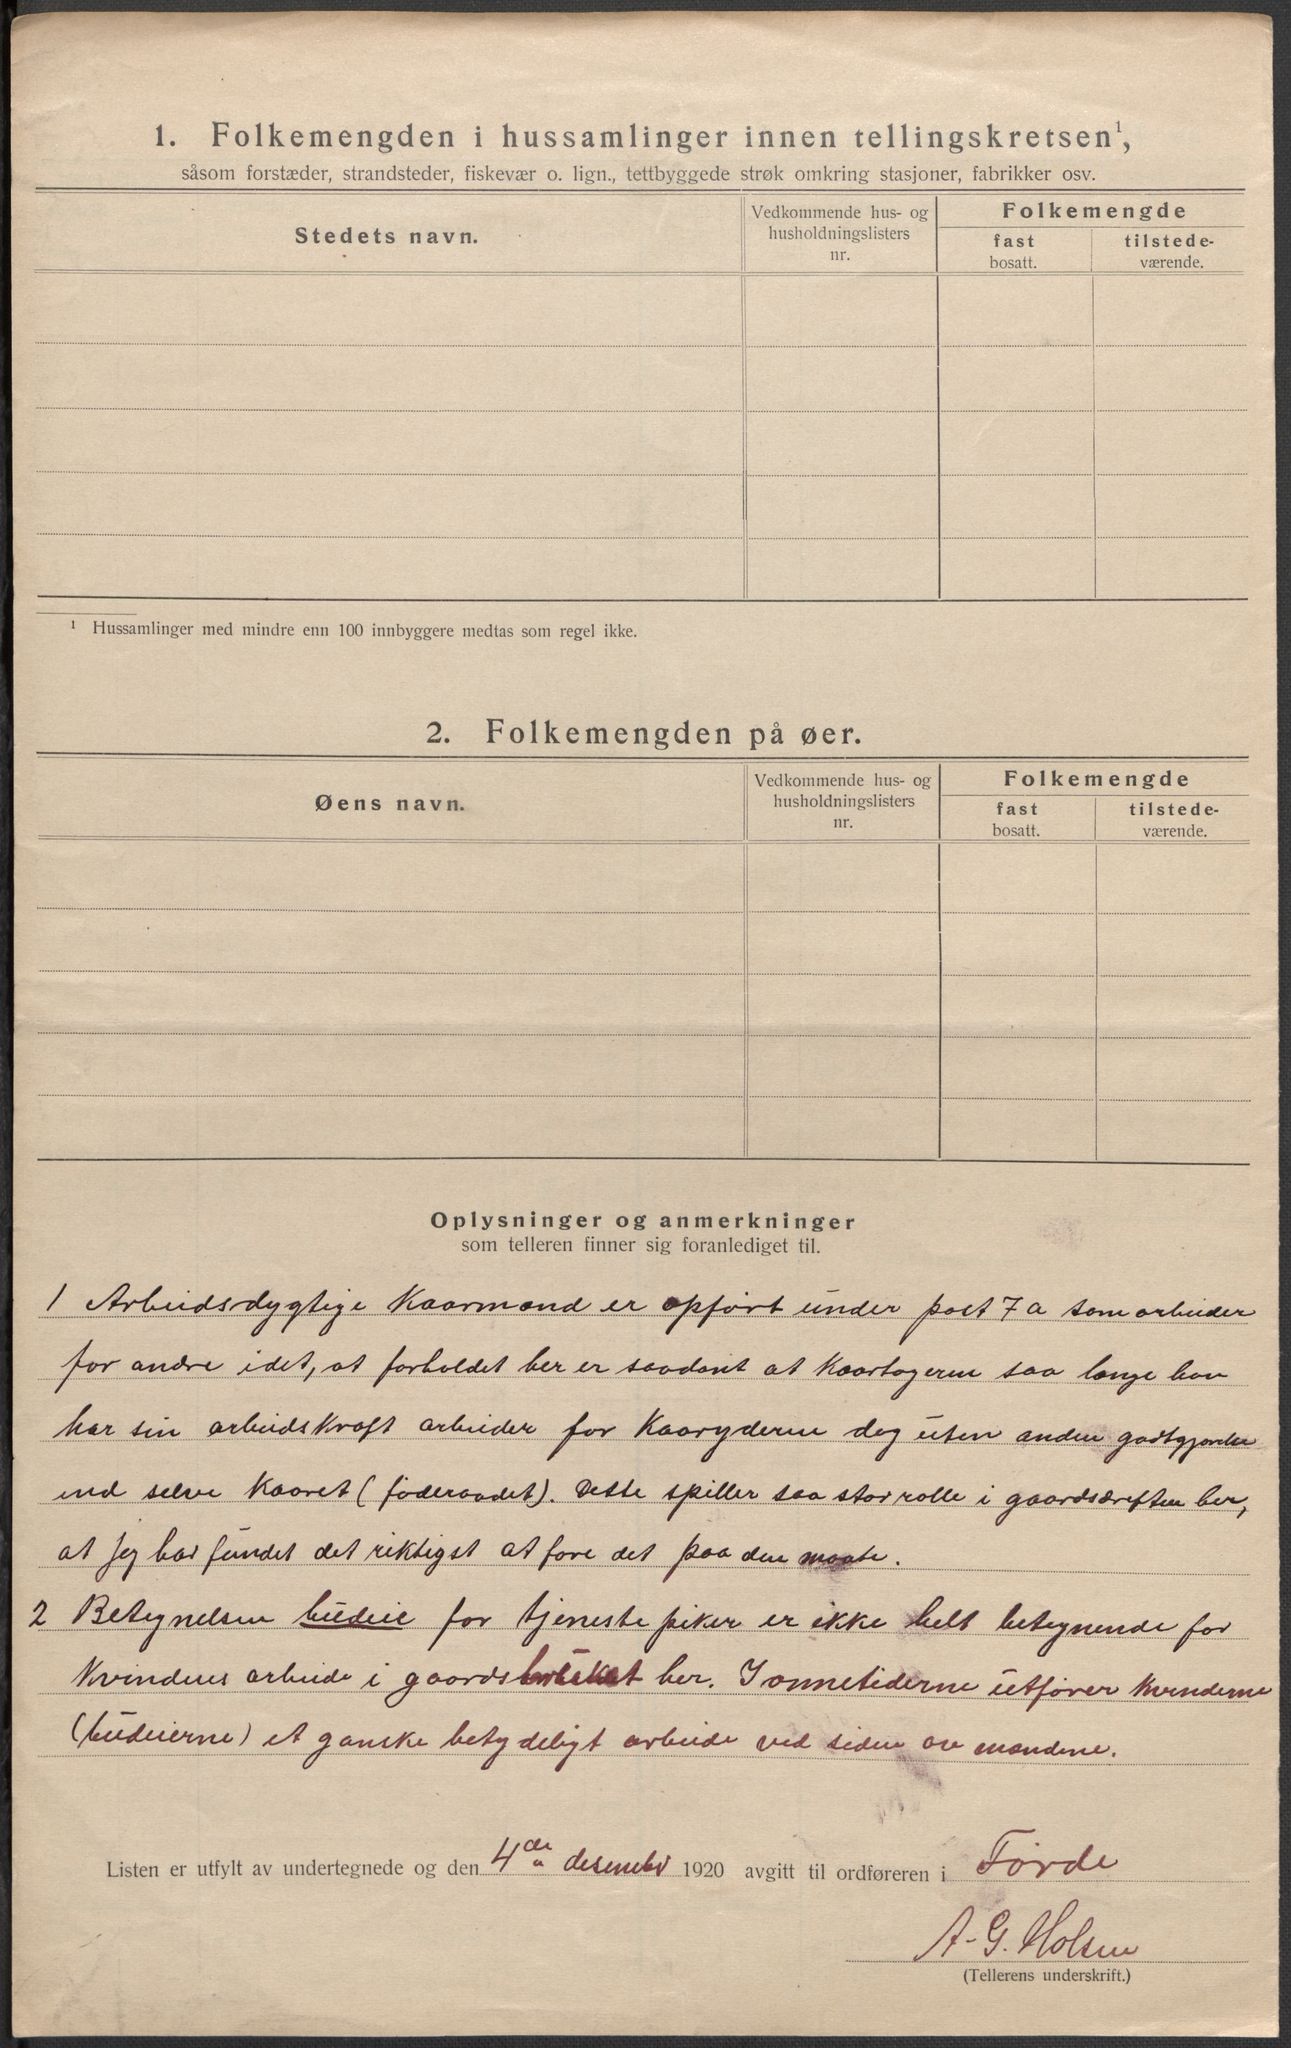 1. Folkemengden i hussamlinger innen tellingskretsen¹,
såsom forstæder, strandsteder, fiskevær o. lign., tettbyggede strøk omkring stasjoner, fabrikker osv.
Stedets navn.
Vedkommende hus- og
husholdningslisters
nr.
Folkemengde
fast
bosatt.
tilstede-
værende.
¹ Hussamlinger med mindre enn 100 innbyggere medtas som regel ikke.
2. Folkemengden på øer.
Øens navn.
Vedkommende hus- og
husholdningslisters
nr.
Folkemengde
fast
bosatt.
tilstede-
værende.
Oplysninger og anmerkninger
som telleren finner sig foranlediget til.
1 Arbeidsdygtige Kaarmænd er opført under post 7 a som arbeider
for andre idet, at forholdet her er saadant at Kaartageren saa længe han
har sin arbeidskraft arbeider for Kaaryderen dog uten anden godtgjørelse
end selve Kaaret (føderaadet). Dette spiller saa stor rolle i gaardsdriften her,
at jeg har fundet det riktigst at føre det paa den maate.
2 Betegnelsen budeie for tjenestepiker er ikke helt betegnende for
Kvindens arbeide i gaardsbruket her. I onnetiderne utfører Kvinderne
(budeierne) et ganske betydeligt arbeide ved siden av mændene.
Listen er utfylt av undertegnede og den 4de desember 1920 avgitt til ordføreren i Førde
A. G. Holsen
(Tellerens underskrift.)